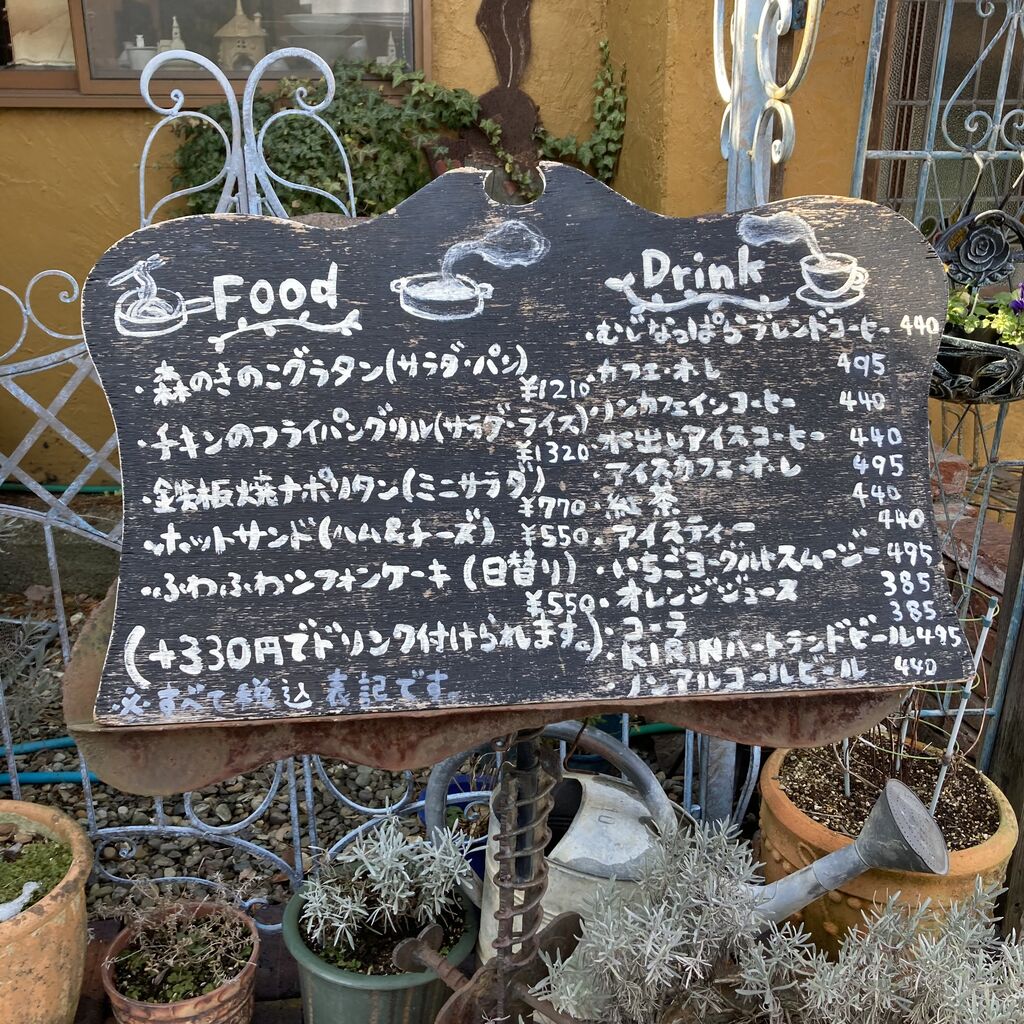 Food
・森のきのこグラタン(サラダ・パン)
¥1210
・チキンのフライパングリル(サラダ・ライス)
¥1320
・鉄板焼ナポリタン(ミニサラダ)
¥770
・ホットサンド(ハム&チーズ) ¥550
・ふわふわシフォンケーキ(日替り)
¥550
(+330円でドリンク付けられます。)
※すべて税込表記です。
Drink
・むじなっぱらブレンドコーヒー 440
・カフェ・オ・レ 495
・ノンカフェインコーヒー 440
・水出しアイスコーヒー 440
・アイスカフェ・オ・レ 495
・紅茶 440
・アイスティー 440
・いちごヨーグルトスムージー 495
・オレンジジュース 385
・コーラ 385
・KIRINハートランドビール 495
・ノンアルコールビール 440